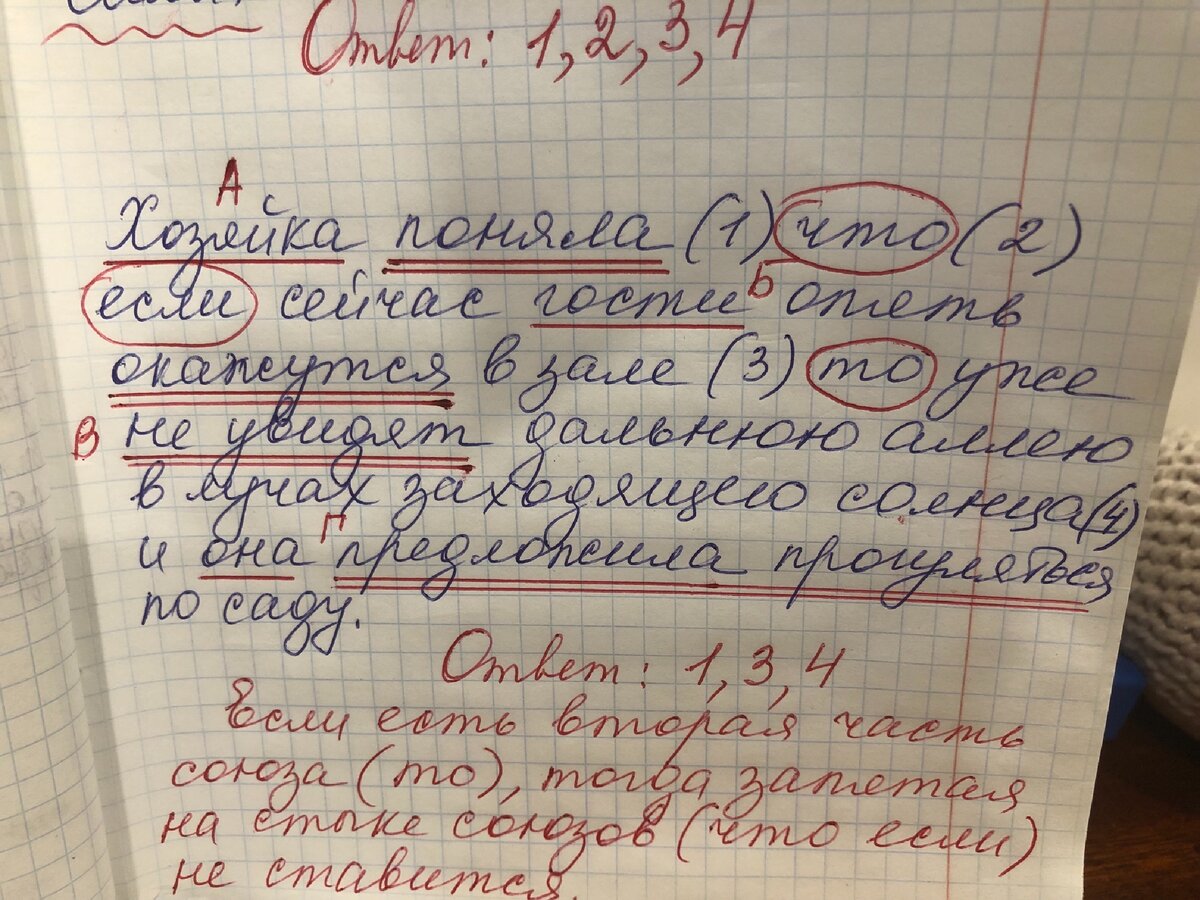 Ответ: 1, 2, 3, 4
А
Хозяйка поняла (1) что (2)
если сейчас гости Б опять
окажутся в зале (3) то уже
В не увидят дальнюю аллею
в лучах заходящего солнца (4)
и она Г предложила прогуляться
по саду.
Ответ: 1, 3, 4
Если есть вторая часть
союза (то), тогда запятая
на стыке союзов (что если)
не ставится.